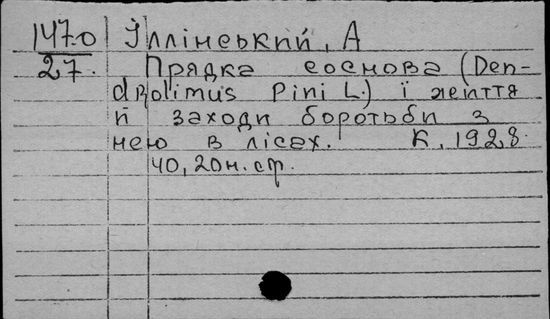 1470 Іллінський, А
27. Прядка соснова (Den-
drolimus Pini L.) ї життя
й заходи боротьби з
нею в лісах. К, 1928.
40, 20н. ст.